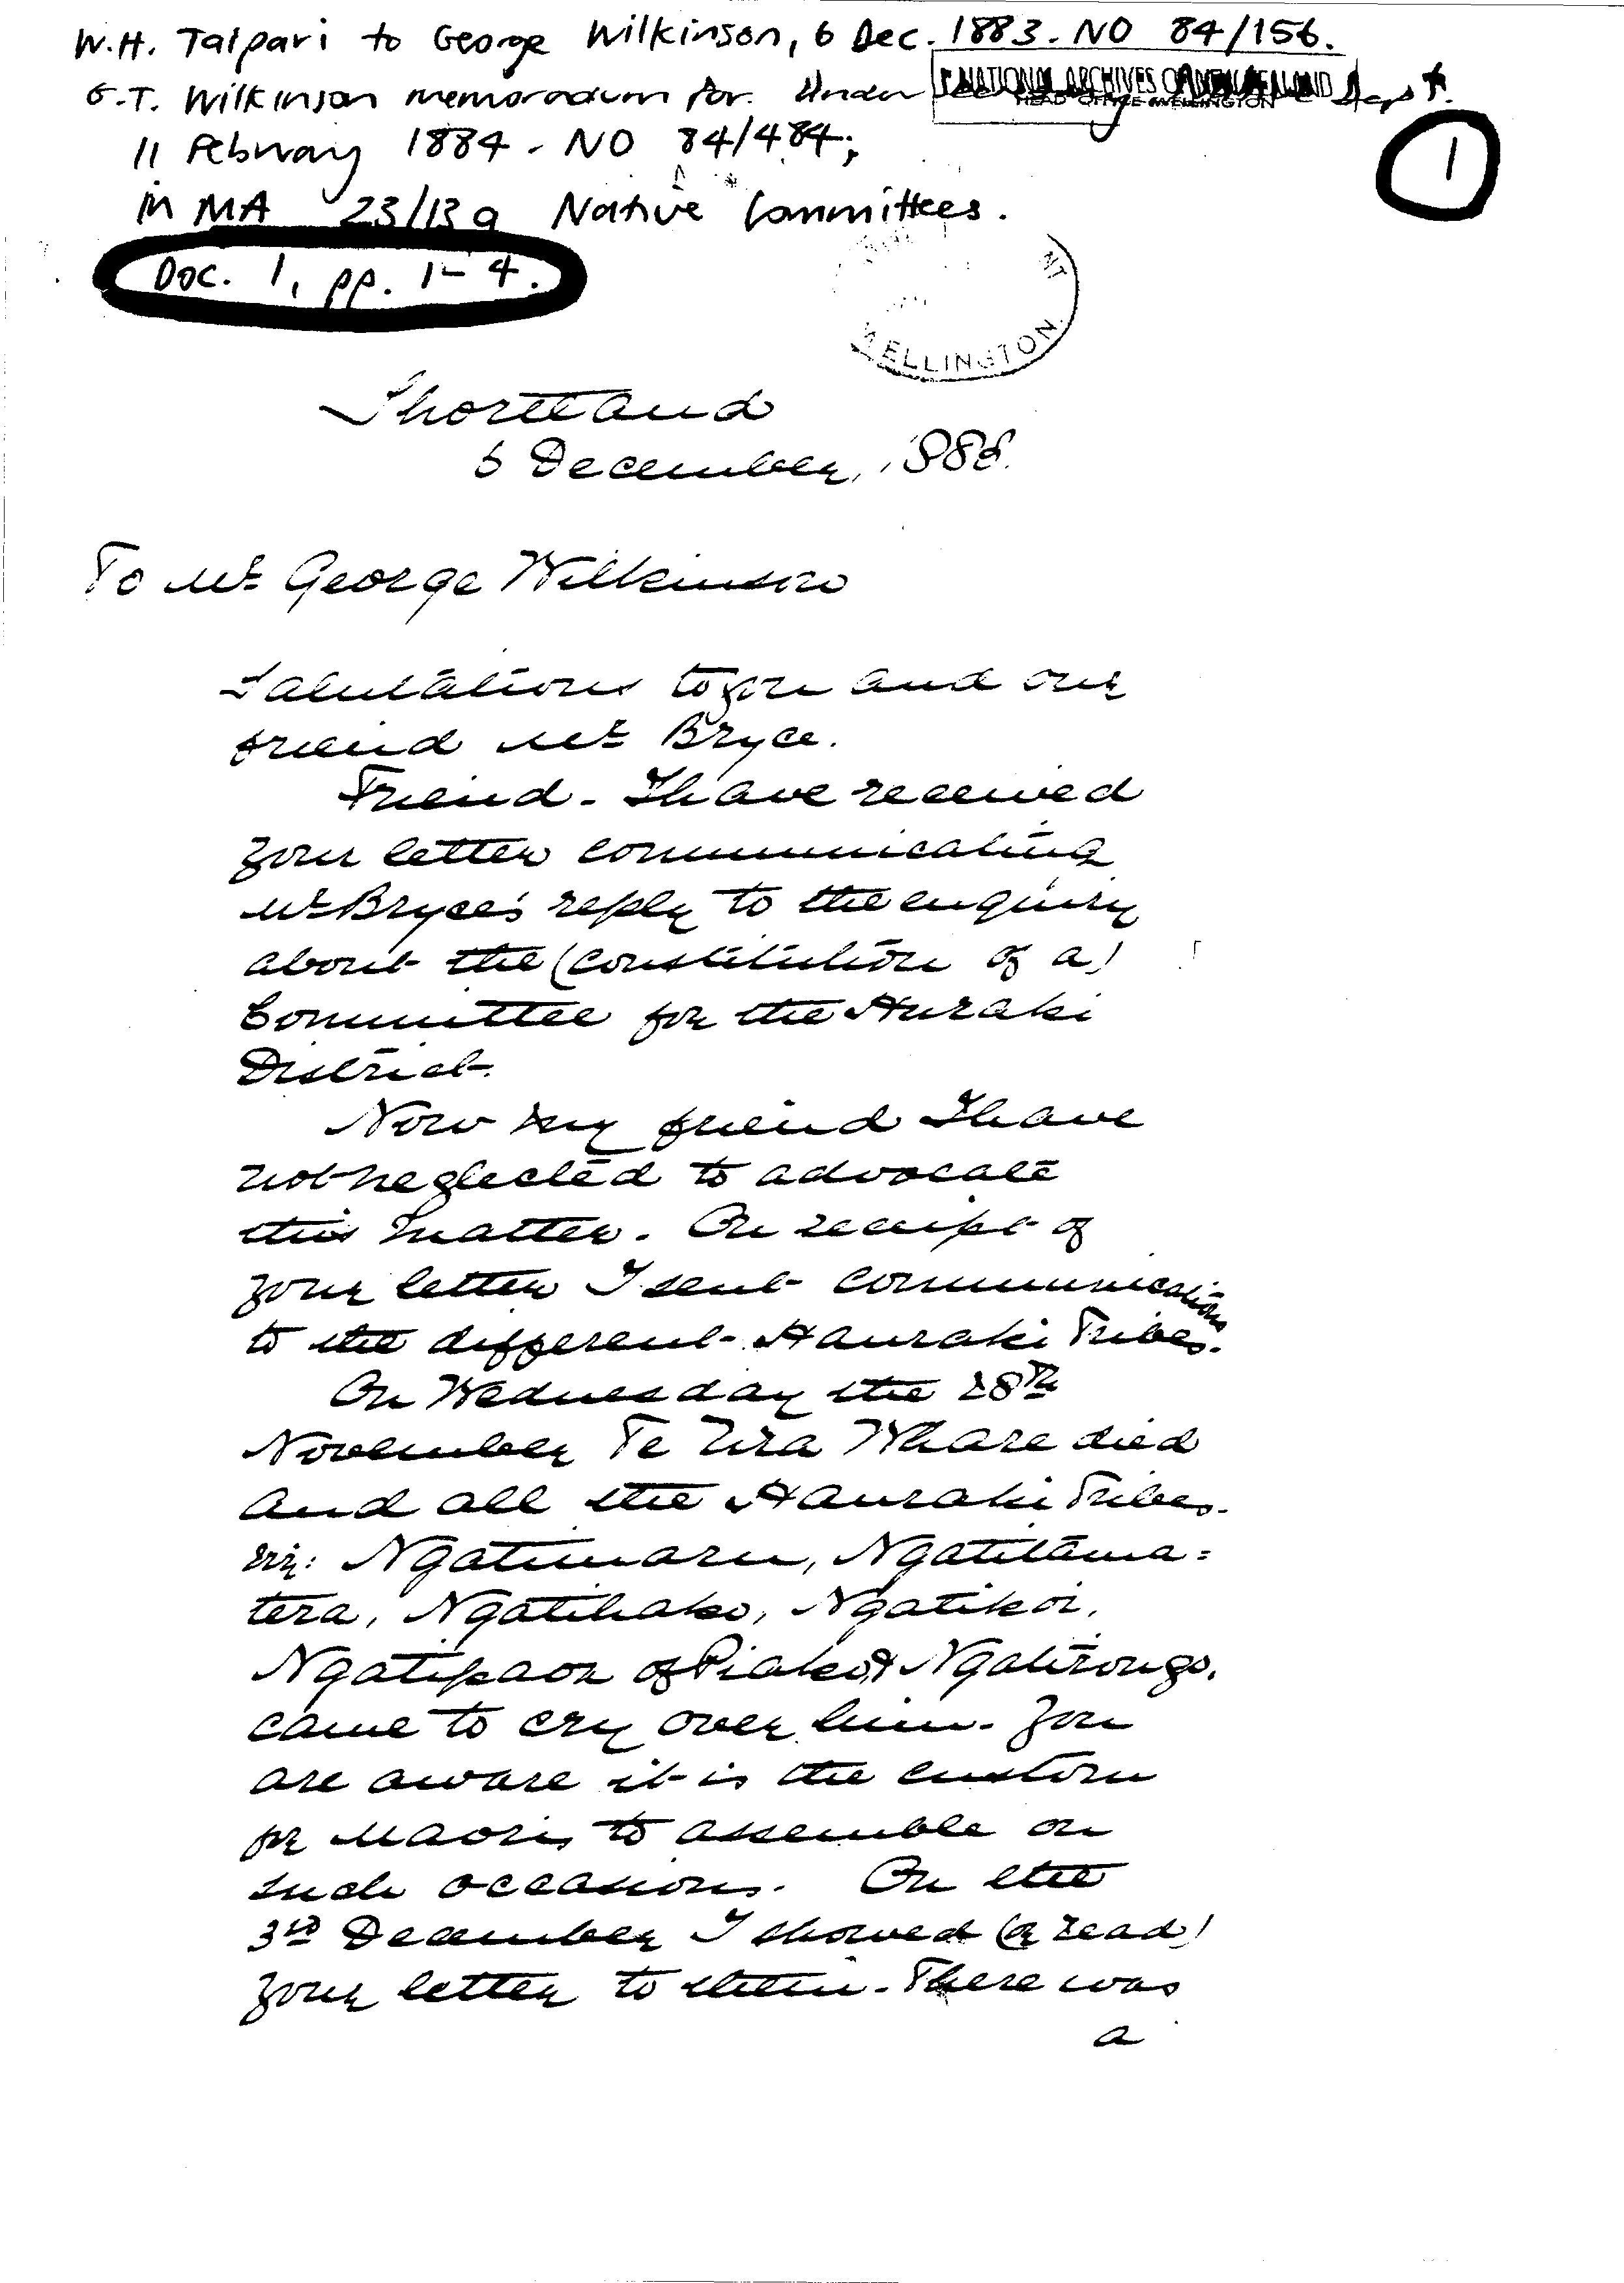 W.H. Taipari to George Wilkinson, 6 Dec. 1883. NO 84/156.
G.T. Wilkinson memorandum for Under Dept.
NATIONAL ARCHIVES OF NEW ZEALAND
HEAD OFFICE WELLINGTON
11 February 1884 - NO 84/484;
1
in MA 23/13a Native Committees.
Doc. 1, pp. 1-4.
NT
WELLINGTON.
Shortland
6 December, 1883.
To Mr. George Wilkinson
Salutations to you and our
friend Mr. Bryce.
Friend - I have received
your letter communicating
Mr. Bryce's reply to the enquiry
about the (constitution of a)
Committee for the Huraki
District.
Now my friend I have
not neglected to advocate
this matter. On receipt of
your letter I sent communications
to the different Hauraki Tribes.
On Wednesday the 28th
November Te Ura Whare died
and all the Hauraki Tribes.
viz: Ngatimaru, Ngatitama=
tera, Ngatihako, Ngatikoi,
Ngatipaoa of Piako, & Ngatirongo.
came to cry over him. You
are aware it is the custom
for Maoris to assemble on
such occasions. On the
3rd December I showed (or read)
your letter to them. There was
a